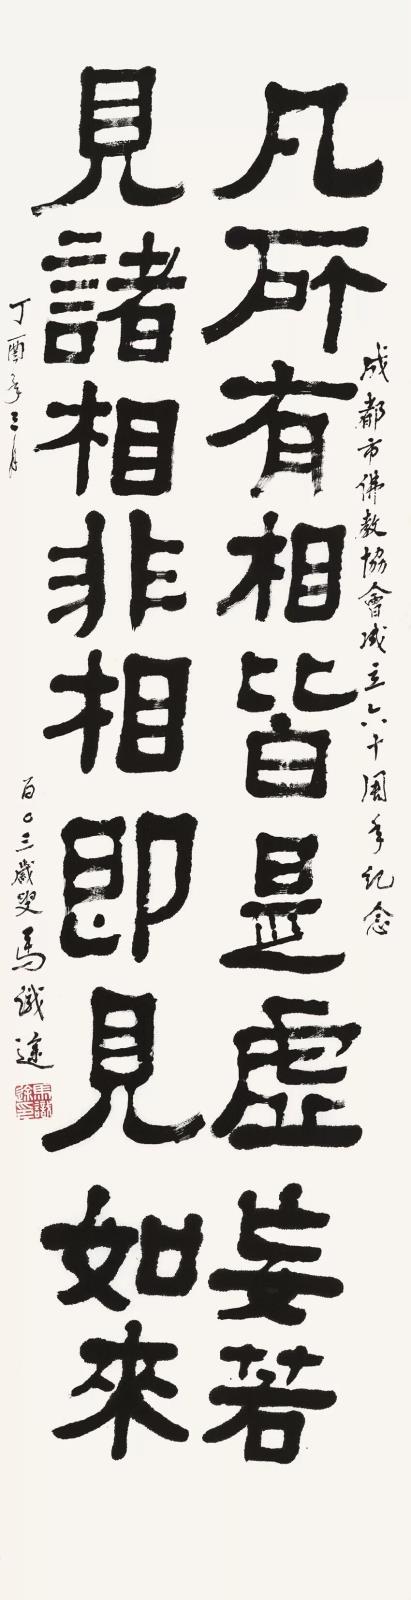 成都市佛教協會成立六十周年纪念
凡所有相皆是虛妄若
見諸相非相即見如來
丁酉年三月
百〇三歲叟馬識途
馬識途印